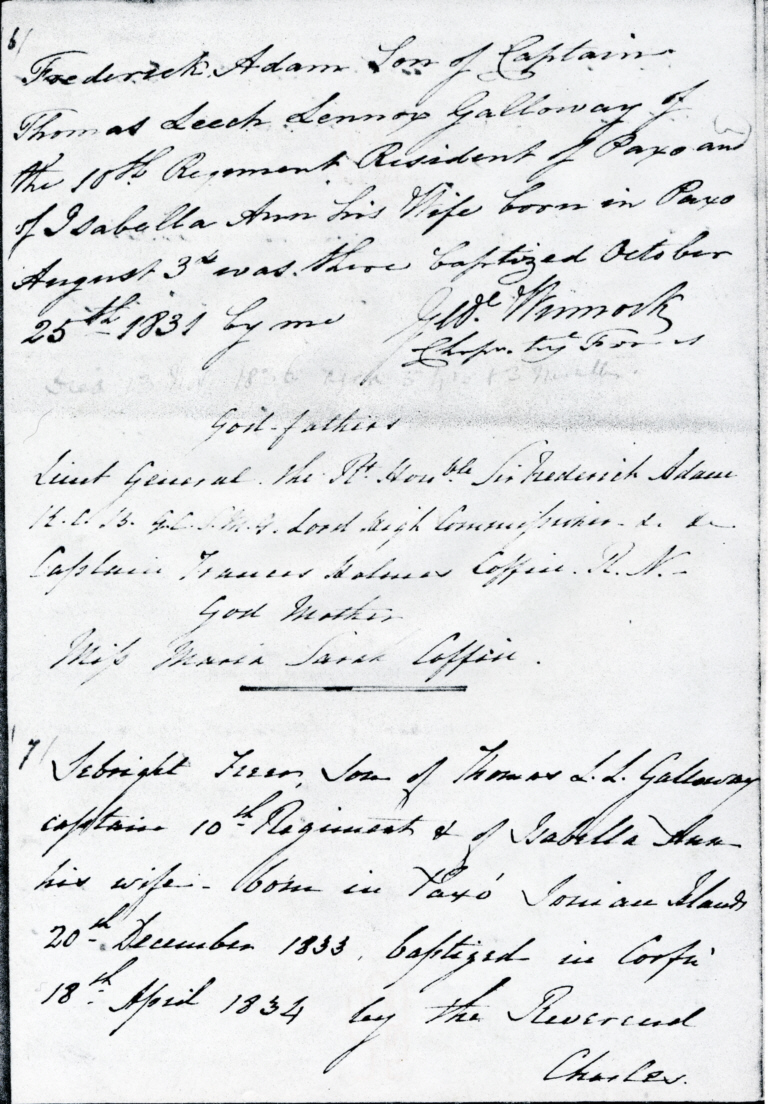 6/
Frederick Adam Son of Captain
Thomas Leech Lennox Galloway of
the 10th Regement Resident of Paxo and
of Isabella Ann his Wife born in Paxo
August 3d was there baptized October
25th 1831 by me Winnock
Chapn. to Forces
Died 13 1836 aged 5 yrs & 3 Months.
God-fathers
Lieut General the Rt Honble Sir Frederick Adam
K.C.B. G.C.S.M.G. Lord High Commissioner &c &c
Captain Frances Holmes Coffin. R.N.
God Mother
Miss Maria Sarah Coffin.
7/
Sebright Son of Thomas L.L. Galloway
captain 10th Regiment & of Isabella Ann
his wife - born in Paxo Ionian Islands
20th December 1833, baptized in Corfu
18th April 1834 by the Reverend
Charles.